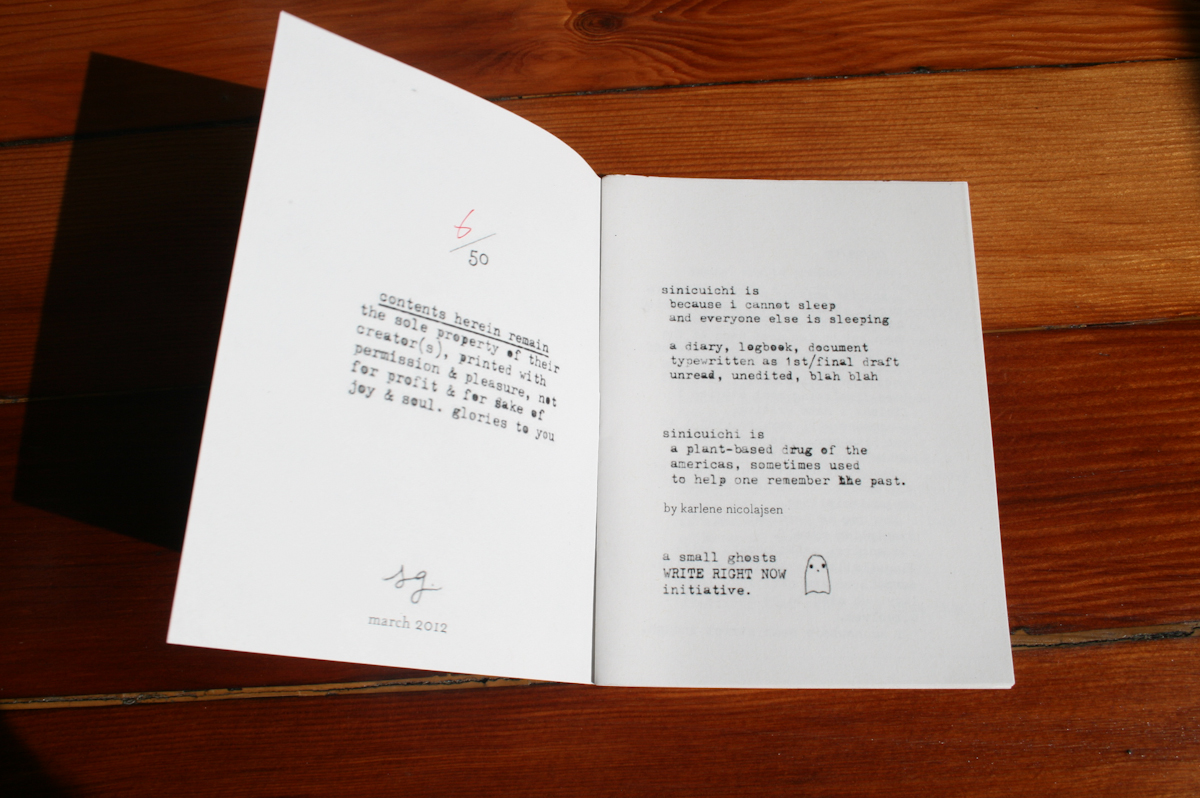 6
50
contents herein remain
the sole property of their
creator(s), printed with
permission & pleasure, not
for profit & for sake of
joy & soul. glories to you
sg.
march 2012
sinicuichi is
because i cannot sleep
and everyone else is sleeping
a diary, logbook, document
typewritten as 1st/final draft
unread, unedited, blah blah
sinicuichi is
a plant-based drug of the
americas, sometimes used
to help one remember the past.
by karlene nicolajsen
a small ghosts
WRITE RIGHT NOW
initiative.